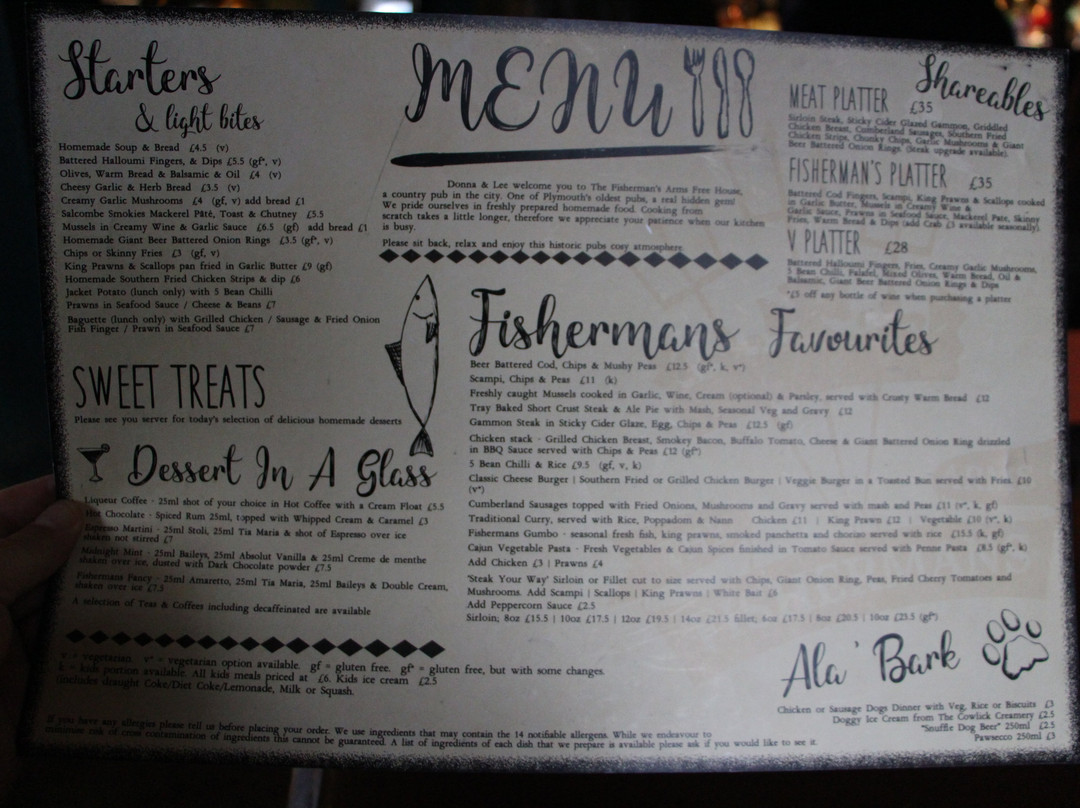 Starters
& light bites
Homemade Soup & Bread £4.5 (v)
Battered Halloumi Fingers, & Dips £5.5 (gf*, v)
Olives, Warm Bread & Balsamic & Oil £4 (v)
Cheesy Garlic & Herb Bread £3.5 (v)
Creamy Garlic Mushrooms £4 (gf, v) add bread £1
Salcombe Smokies Mackerel Pâté, Toast & Chutney £5.5
Mussels in Creamy Wine & Garlic Sauce £6.5 (gf) add bread £1
Homemade Giant Beer Battered Onion Rings £3.5 (gf*, v)
Chips or Skinny Fries £3 (gf, v)
King Prawns & Scallops pan fried in Garlic Butter £9 (gf)
Homemade Southern Fried Chicken Strips & dip £6
Jacket Potato (lunch only) with 5 Bean Chilli
Prawns in Seafood Sauce / Cheese & Beans £7
Baguette (lunch only) with Grilled Chicken / Sausage & Fried Onion
Fish Finger / Prawn in Seafood Sauce £7
SWEET TREATS
Please see you server for today's selection of delicious homemade desserts
Dessert In A Glass
Liqueur Coffee - 25ml shot of your choice in Hot Coffee with a Cream Float £5.5
Hot Chocolate - Spiced Rum 25ml, topped with Whipped Cream & Caramel £3
Espresso Martini - 25ml Stoli, 25ml Tia Maria & shot of Espresso over ice
shaken not stirred £7
Midnight Mint - 25ml Baileys, 25ml Absolut Vanilla & 25ml Creme de menthe
shaken over ice, dusted with Dark Chocolate powder £7.5
Fishermans Fancy - 25ml Amaretto, 25ml Tia Maria, 25ml Baileys & Double Cream,
shaken over ice £7.5
A selection of Teas & Coffees including decaffeinated are available
v = vegetarian v* = vegetarian option available. gf = gluten free. gf* = gluten free, but with some changes.
k = kids portion available. All kids meals priced at £6. Kids ice cream £2.5
Includes draught Coke/Diet Coke/Lemonade, Milk or Squash.
If you have any allergies please tell us before placing your order. We use ingredients that may contain the 14 notifiable allergens. While we endeavour to
minimum risk of cross contamination of ingredients this cannot be guaranteed. A list of ingredients of each dish that we prepare is available please ask if you would like to see it.
MENU
Donna & Lee welcome you to The Fisherman's Arms Free House,
a country pub in the city. One of Plymouth's oldest pubs, a real hidden gem!
We pride ourselves in freshly prepared homemade food. Cooking from
scratch takes a little longer, therefore we appreciate your patience when our kitchen
is busy.
Please sit back, relax and enjoy this historic pubs cosy atmosphere.
Shareables
MEAT PLATTER £35
Sirloin Steak, Sticky Cider Glazed Gammon, Griddled
Chicken Breast, Cumberland Sausages, Southern Fried
Chicken Strips, Chunky Chips, Garlic Mushrooms & Giant
Beer Battered Onion Rings (Steak upgrade available).
FISHERMAN'S PLATTER £35
Battered Cod Fingers, Scampi, King Prawns & Scallops cooked
in Garlic Butter, Mussels in Creamy Wine &
Garlic Sauce, Prawns in Seafood Sauce, Mackerel Pate, Skinny
Fries, Warm Bread & Dips (add Crab £3 available seasonally).
V PLATTER £28
Battered Halloumi Fingers, Fries, Creamy Garlic Mushrooms,
5 Bean Chilli, Falafel, Mixed Olives, Warm Bread, Oil &
Balsamic, Giant Beer Battered Onion Rings & Dips
*£5 off any bottle of wine when purchasing a platter
Fishermans Favourites
Beer Battered Cod, Chips & Mushy Peas £12.5 (gf*, k, v*)
Scampi, Chips & Peas £11 (k)
Freshly caught Mussels cooked in Garlic, Wine, Cream (optional) & Parsley, served with Crusty Warm Bread £12
Tray Baked Short Crust Steak & Ale Pie with Mash, Seasonal Veg and Gravy £12
Gammon Steak in Sticky Cider Glaze, Egg, Chips & Peas £12.5 (gf)
Chicken stack - Grilled Chicken Breast, Smokey Bacon, Buffalo Tomato, Cheese & Giant Battered Onion Ring drizzled
in BBQ Sauce served with Chips & Peas £12 (gf*)
5 Bean Chilli & Rice £9.5 (gf, v, k)
Classic Cheese Burger | Southern Fried or Grilled Chicken Burger | Veggie Burger in a Toasted Bun served with Fries £10
(v*)
Cumberland Sausages topped with Fried Onions, Mushrooms and Gravy served with mash and Peas £11 (v*, k, gf)
Traditional Curry, served with Rice, Poppadom & Nann Chicken £11 | King Prawn £12 | Vegetable £10 (v*, k)
Fishermans Gumbo - seasonal fresh fish, king prawns, smoked panchetta and chorizo served with rice £15.5 (k, gf)
Cajun Vegetable Pasta - Fresh Vegetables & Cajun Spices finished in Tomato Sauce served with Penne Pasta £8.5 (gf*, k)
Add Chicken £3 | Prawns £4
'Steak Your Way' Sirloin or Fillet cut to size served with Chips, Giant Onion Ring, Peas, Fried Cherry Tomatoes and
Mushrooms. Add Scampi | Scallops | King Prawns | White Bait £6
Add Peppercorn Sauce £2.5
Sirloin; 8oz £15.5 | 10oz £17.5 | 12oz £19.5 | 14oz £21.5 fillet; 6oz £17.5 | 8oz £20.5 | 10oz £23.5 (gf*)
Ala' Bark
Chicken or Sausage Dogs Dinner with Veg, Rice or Biscuits £3
Doggy Ice Cream from The Cowlick Creamery £2.5
"Snuffle Dog Beer" 250ml £2.5
Pawsecco 250ml £3